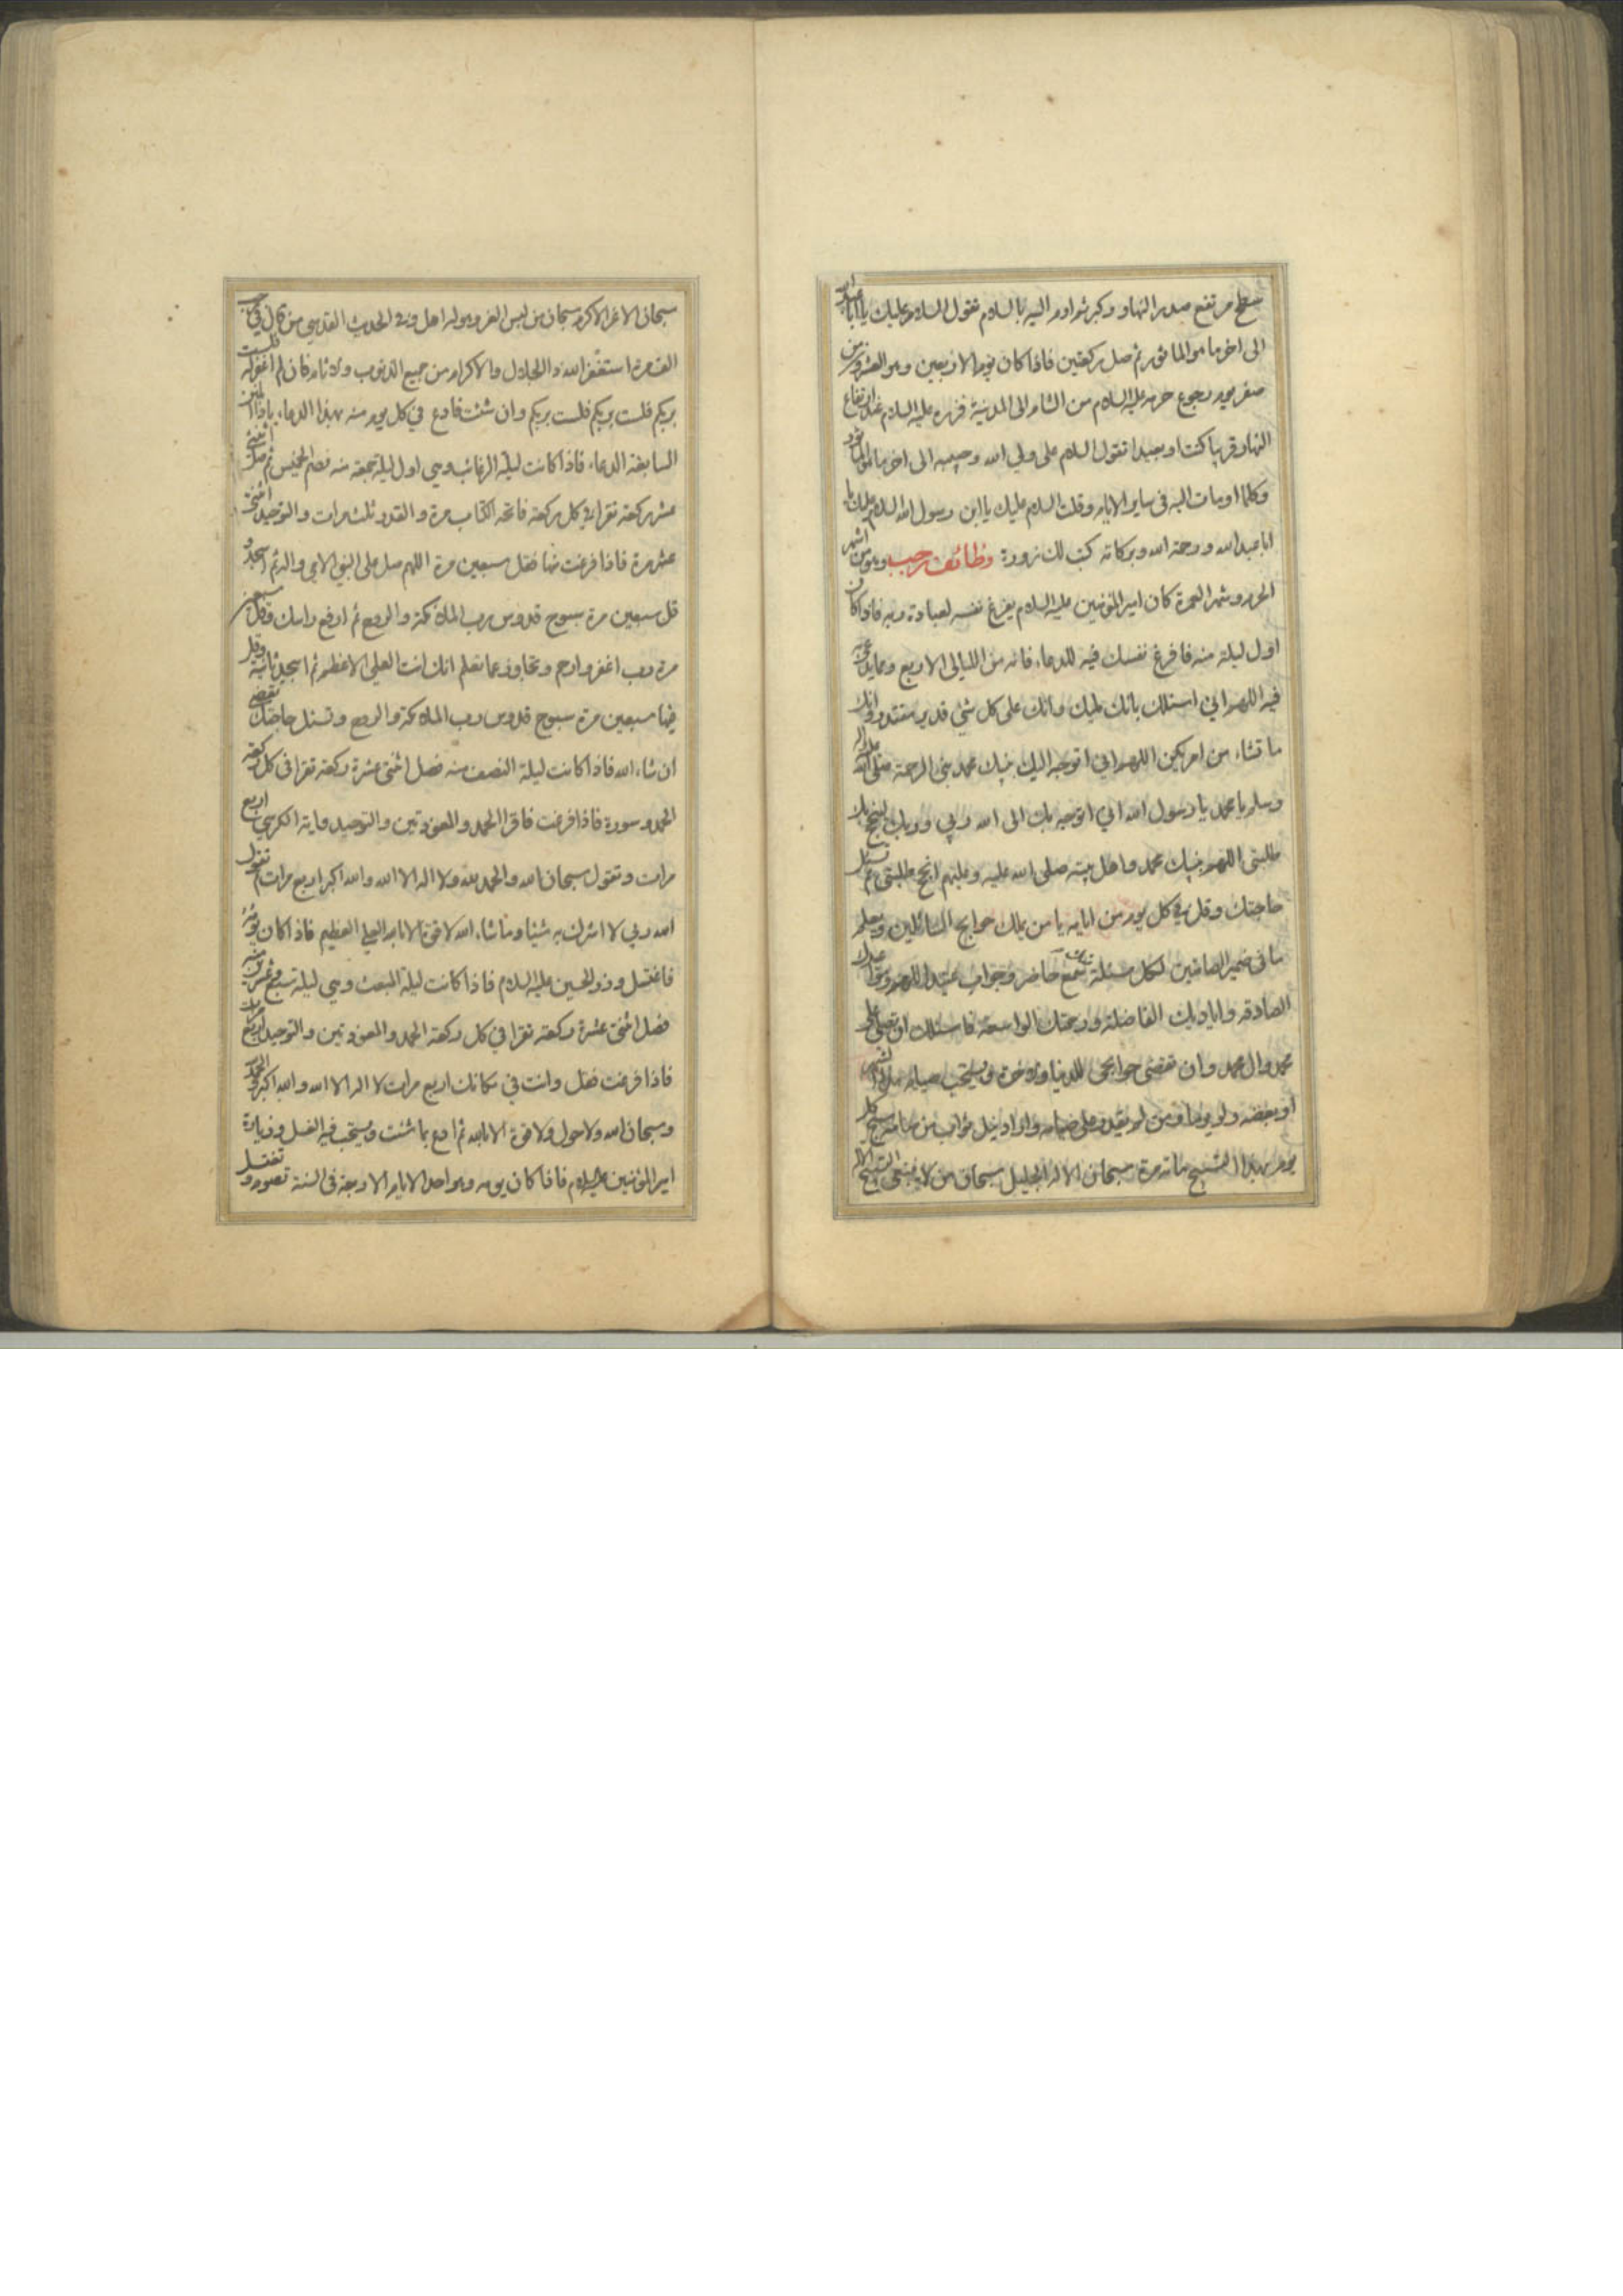 سطح مرتفع صدر النهار وكبر ثم اوم اليه بالسلام تقول السلام عليك يا ابا عبد الله
الى اخر ما هو الماثور ثم صل ركعتين فاذا كان يوم الاربعين وهو العشرون من
صفر يوم رجوع حرمه عليه السلام من الشام الى المدينة فزره عليه السلام عند ارتفاع
النهار قريبا كنت او بعيدا تقول السلام على ولي الله وحبيبه الى اخر ما هو الماثور
وكلما اومات اليه في ساير الايام وقلت السلام عليك يا ابن رسول الله السلام عليك يا
ابا عبد الله ورحمة الله وبركاته كتب لك زورة وظائف رجب وهو من اشهر
الحرم وشهر العمرة كان امير المؤمنين عليه السلام يفرغ نفسه لعبادة ربه فاذا كان
اول ليلة منه فافرغ نفسك فيه للدعاء فانه من الليالي الاربع ومما يدعى به
فيه اللهم اني اسئلك بانك مليك وانك على كل شئ قدير مقتدر وانك
ما تشاء من امر يكن اللهم اني اتوجه اليك بنبيك محمد نبي الرحمة صلى الله عليه واله
وسلم يا محمد يا رسول الله اني اتوجه بك الى الله ربي وربك لينجح بك
طلبتي اللهم بنبيك محمد واهل بيته صلى الله عليه وعليهم انجح طلبتي ثم تسئل
حاجتك وقل في كل يوم من ايامه يا من يملك حوايج السائلين ويعلم
ما في ضمير الصامتين لكل مسئلة منك سمع حاضر وجواب عتيد اللهم ومواعيدك
الصادقة واياديك الفاضلة ورحمتك الواسعة فاسئلك ان تصلي على
محمد وال محمد وان تقضي حوايجي للدنيا والاخرة ويستحب صيامه كل الشهر
او بعضه ولو يوما ومن لم يقدر على صيامه واراد نيل ثواب من صامه سبح كل
يوم بهذا التسبيح مائة مرة سبحان الاله الجليل سبحان من لا ينبغي التسبيح الا له
سبحان الاعز الاكرم سبحان من لبس العز وهو له اهل وفي الحديث القدسي من قال في رجب
الف مرة استغفر الله ذا الجلال والاكرام من جميع الذنوب والاثام فان لم اغفر له فلست
بربكم فلست بربكم فلست بربكم وان شئت فادع في كل يوم منه بهذا الدعاء يا ذا المنن
السابغة الدعاء فاذا كانت ليلة الرغائب وهي اول ليلة جمعة منه فصم الخميس ثم صل اثنتي
عشر ركعة تقرا في كل ركعة فاتحة الكتاب مرة والقدر ثلث مرات والتوحيد اثنتي
عشر مرة فاذا فرغت منها فقل سبعين مرة اللهم صل على النبي الامي واله ثم اسجد و
قل سبعين مرة سبوح قدوس رب الملائكة والروح ثم ارفع راسك وقل سبعين
مرة رب اغفر وارحم وتجاوز عما تعلم انك انت العلي الاعظم ثم اسجد ثانية وقل
فيها سبعين مرة سبوح قدوس رب الملائكة والروح وتسئل حاجتك تقضى
ان شاء الله فاذا كانت ليلة النصف منه فصل اثنتي عشرة ركعة تقرا في كل ركعة
الحمد وسورة فاذا فرغت فاقرا الحمد والمعوذتين والتوحيد واية الكرسي اربع
مرات وتقول سبحان الله والحمد لله ولا اله الا الله والله اكبر اربع مرات ثم تقول
الله ربي لا اشرك به شيئا وما شاء الله لا قوة الا بالله العلي العظيم فاذا كان يومه
فاغتسل وزر الحسين عليه السلام فاذا كانت ليلة المبعث وهي ليلة سبع وعشرين منه
فصل اثنتي عشرة ركعة تقرا في كل ركعة الحمد والمعوذتين والتوحيد اربع مرات
فاذا فرغت فقل وانت في مكانك اربع مرات لا اله الا الله والله اكبر والحمد لله
وسبحان الله ولا حول ولا قوة الا بالله ثم ادع بما شئت ويستحب فيه الغسل وزيارة
امير المؤمنين عليه السلام فاذا كان يومه وهو احد الايام الاربعة في السنة تصومه وتغتسل